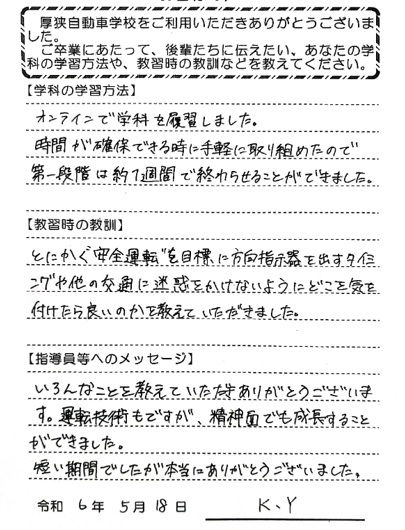 厚狭自動車学校をご利用いただきありがとうございま
した。
ご卒業にあたって、後輩たちに伝えたい、あなたの学
科の学習方法や、教習時の教訓などを教えてください。
【学科の学習方法】
オンラインで学科を履習しました。
時間が確保できる時に手軽に取り組めたので
第一段階は約1週間で終わらせることができました。
【教習時の教訓】
とにかく"安全運転"を目標に方向指示器を出すタイミ
ングや他の交通に迷惑をかけないようにどこを気を
付けたら良いのかを教えていただきました。
【指導員等へのメッセージ】
いろんなことを教えていただきありがとうございま
す。運転技術もですが、精神面でも成長すること
ができました。
短い期間でしたが本当にありがとうございました。
令和 6年 5月 18日 K.Y